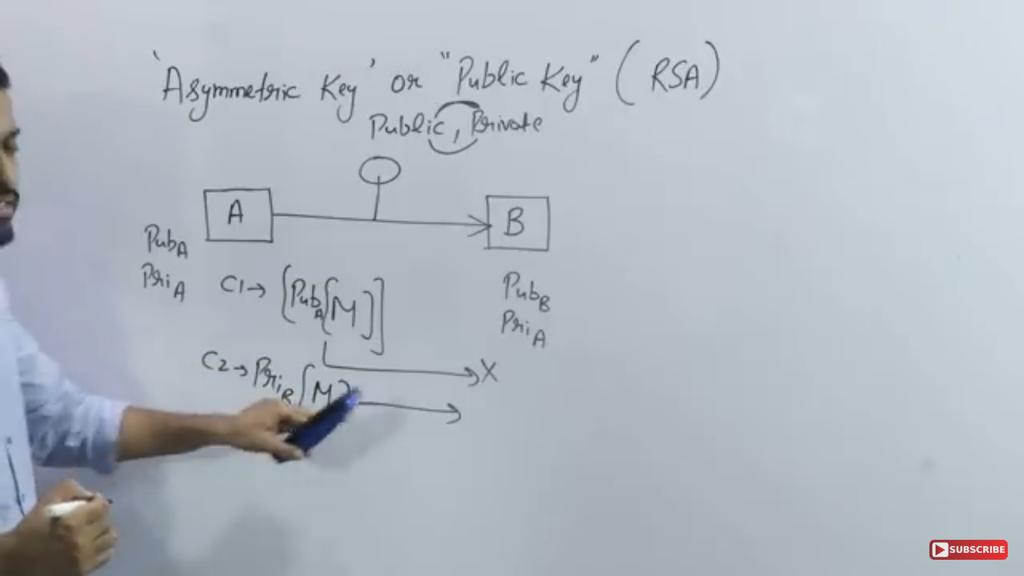 'Asymmetric Key' or "Public Key" (RSA)
Public, Private
A
B
Pub_A
Pri_A
C1→ [Pub_A[M]]
Pub_B
Pri_A
X
C2→ Pri_B[M]
SUBSCRIBE